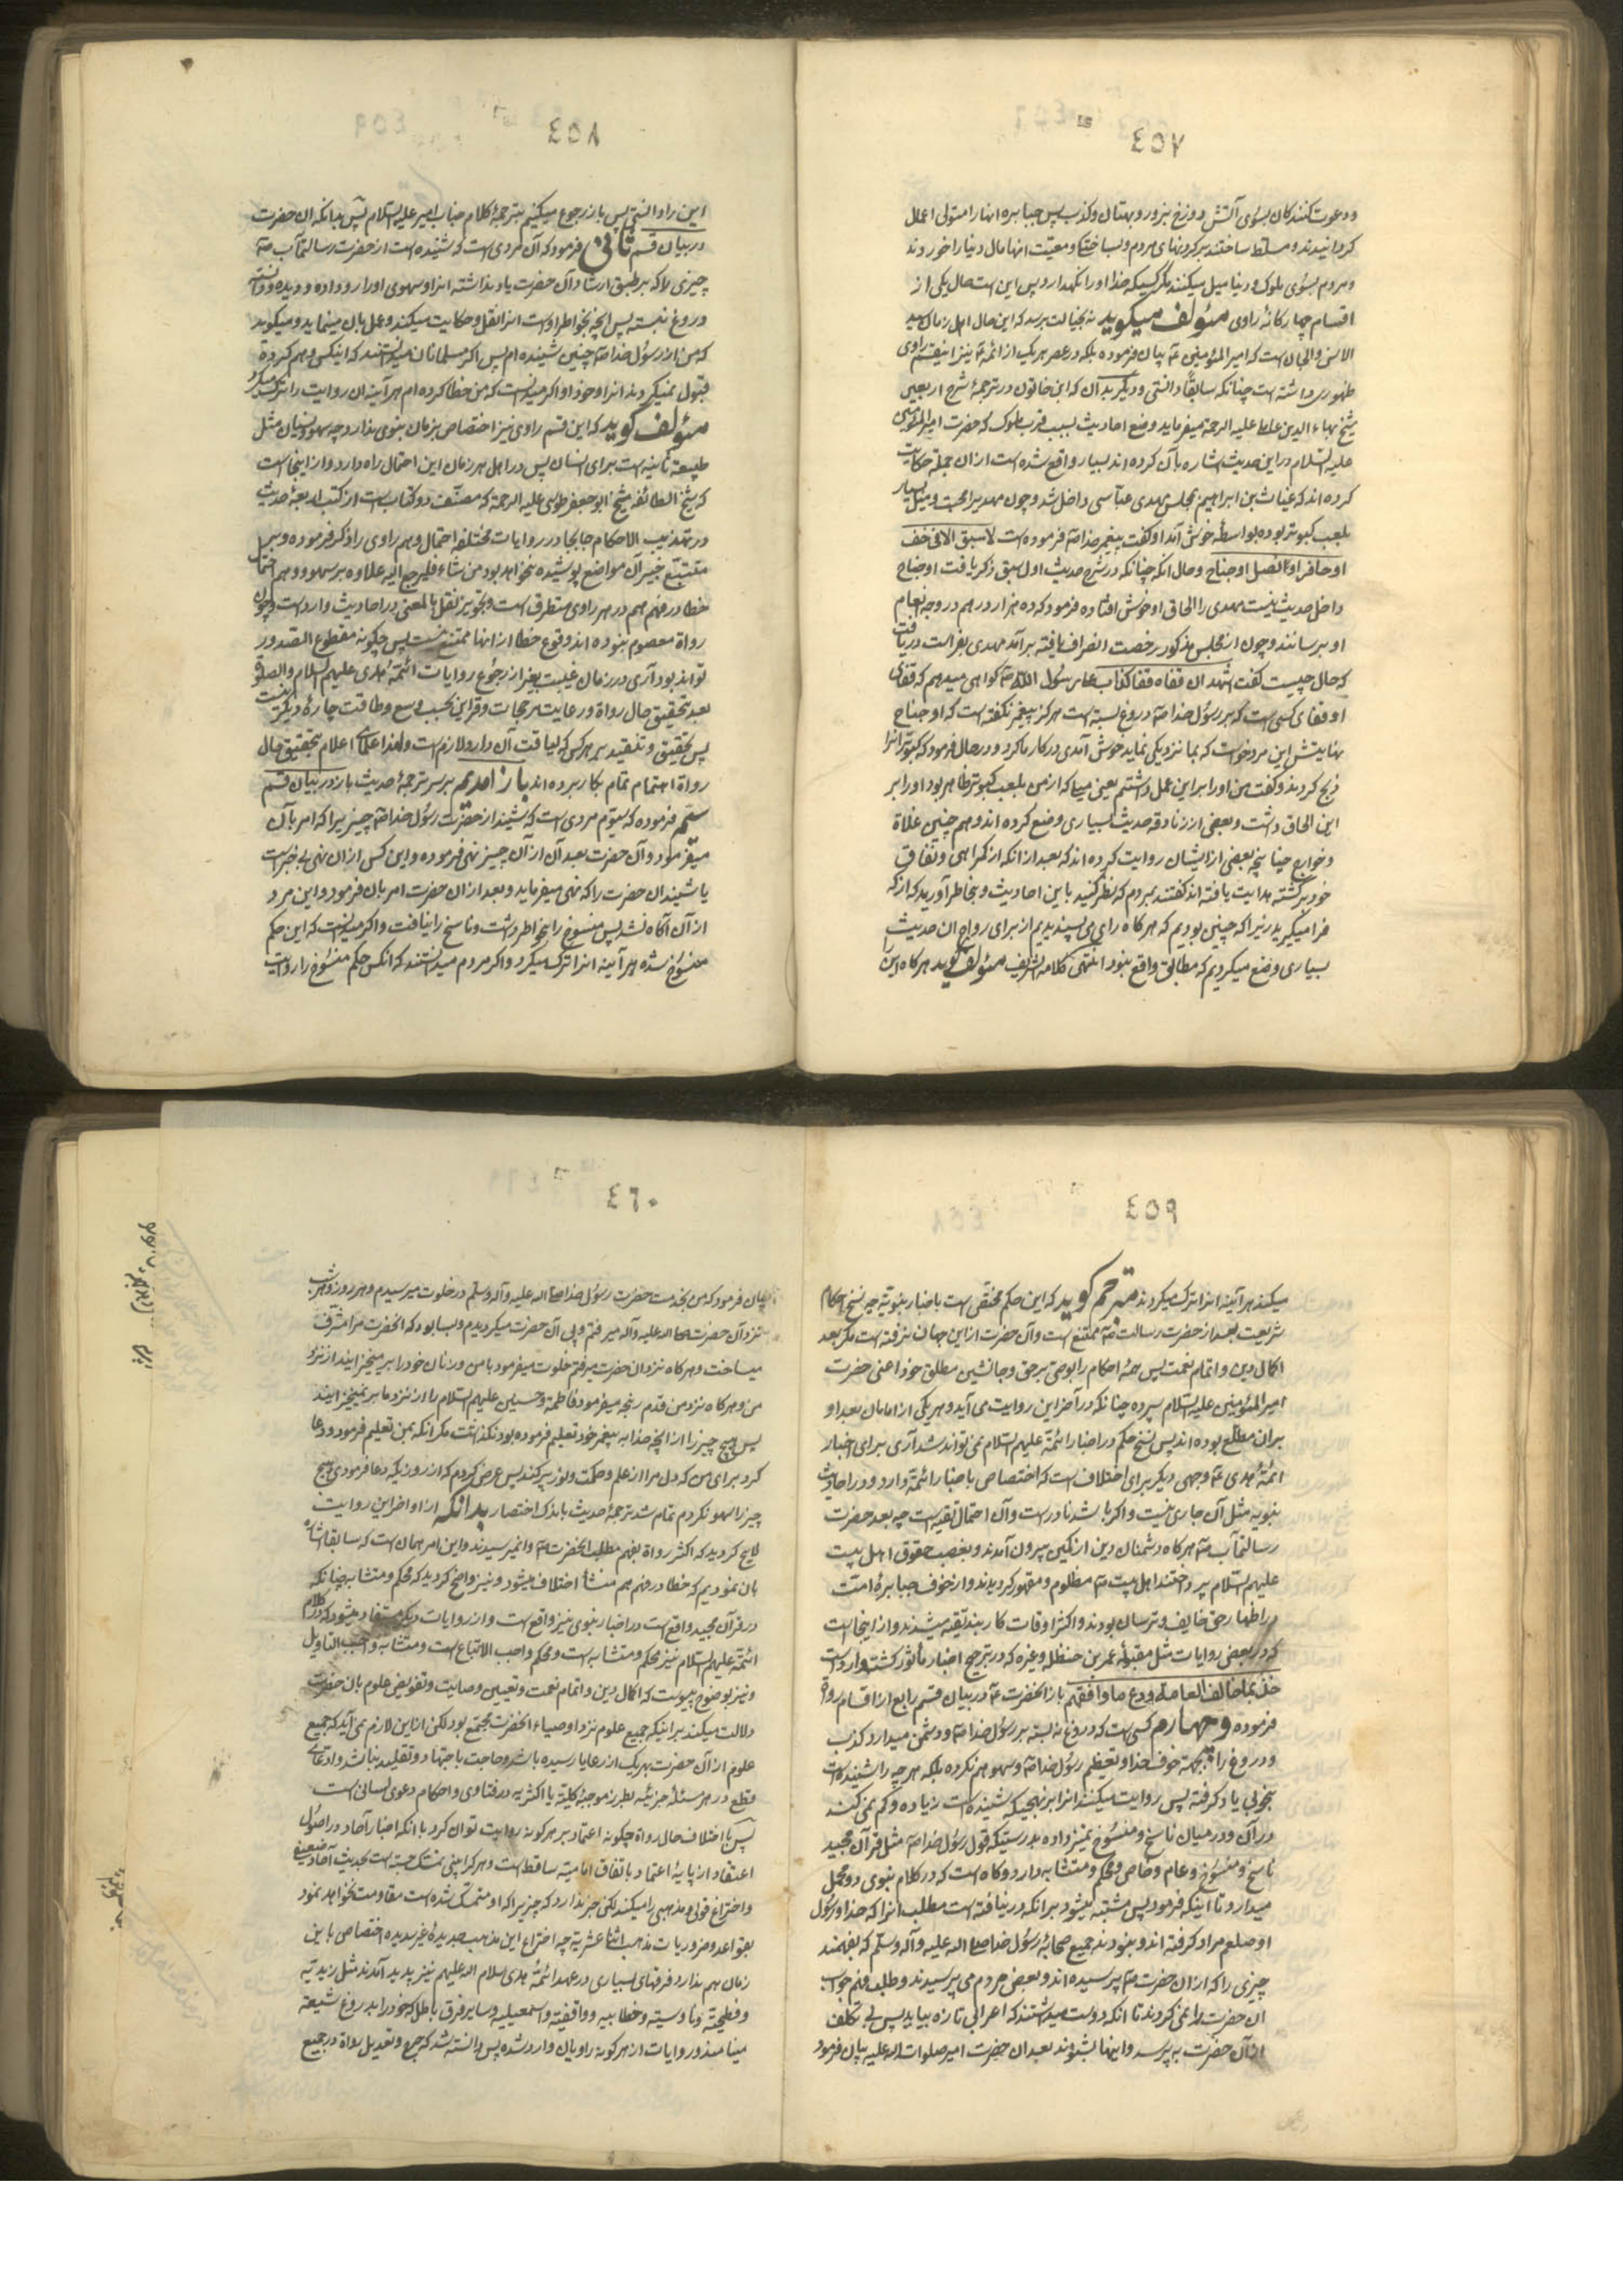 ٤٥٧
ودعوت کنندکان بسوی آتش دوزخ بزور و بهتان و کذب پس جبابره انها را متولی اعمال
کردانیدند و مسلط ساختند بر کردنهای مردم و بساختگی و معیت انها مال دنیا را خوردند
و مردم بسوی ملوک و دنیا میل میکنند مگر کسیکه خدا او را نکهدارد پس این است حال یکی از
اقسام چهارکانه راوی مؤلف میکوید نه بخیالت برسد که این حال اهل زمان سید
الانس والجان است که امیر المؤمنین ع بیان فرموده بلکه در عصر هر یک از ائمه ع نیز اینقسم راوی
ظهوری داشته است چنانکه سابقاً دانستی و دیکر بدان که ابن خاتون در ترجمهٔ شرح اربعین
شیخ بهاء الدین عاملی علیه الرحمة میفرماید وضع احادیث بسبب قرب ملوک که حضرت امیر المؤمنین
علیه السلام در این حدیث اشاره بآن کرده اند بسیار واقع شده است از ان جمله حکایت
کرده اند که غیاث بن ابراهیم بمجلس مهدی عباسی داخل شد و چون مهدی را محبت و میل بسیار
بلعب کبوتر بوده بواسطه خوش آمد او کفت پیغمبر خدا ص فرموده است لا سبق الا فی خف
او حافر او نصل او جناح و حال انکه چنانکه در شرح حدیث اول سبق ذکر یافت او جناح
داخل حدیث نیست مهدی را الحاق او خوش افتاده فرمود که ده هزار درهم در وجه انعام
او برسانند و چون از مجلس مذکور رخصت انصراف یافته برآمد مهدی بفراست دریافت
که حال چیست کفت اشهد ان قفاه قفا کذاب علی رسول الله ص کواهی میدهم که قفای
او قفای کسی است که بر رسول خدا ص دروغ بسته است هرکز پیغمبر نکفته است که او جناح
نهایتش این مرد خواست که بما نزدیکی نماید خوش آمدی در کار ما کرد و در حال فرمود که کبوتر انرا
ذبح کردند و کفت من او را بر این عمل داشتم یعنی میل که از من بلعب کبوتر ظاهر بود او را بر
این الحاق داشت و بعضی از زنادقه حدیث بسیاری وضع کرده اند و همچنین غلاة
و خوارج چنانچه بعضی از ایشان روایت کرده اند که بعد از انکه از کمراهی و نفاق
خود برکشته هدایت یافته اند کفتند بمردم که نظر کنید باین احادیث و بخاطر آورید که از که
فرا میکیرید زیرا که چنین بودیم که هرکاه رای می پسندیدیم از برای رواج ان حدیث
بسیاری وضع میکردیم که مطابق واقع نبود انتهی کلامه الشریف مؤلف کوید هرکاه این را
٤٥٨
این را دانستی پس باز رجوع میکنیم بترجمهٔ کلام جناب امیر علیه السلام پس بدانکه ان حضرت
در بیان قسم ثانی فرمود که آن مردی است که شنیده است از حضرت رسالتمآب ص
چیزی را که بر طبق ارشاد آن حضرت یاد نداشته انرا و سهوی او را رو داده و دیده و دانسته
دروغ نبسته پس انچه بخواطر اوست انرا نقل و حکایت میکند و عمل بان مینماید و میکوید
که من از رسول خدا ص چنین شنیده ام پس اکر مسلمانان میدانستند که اینکس وهم کرده
قبول نمیکردند انرا و خود او اکر میدانست که من خطا کرده ام هر آینه ان روایت را ترک میکرد
مؤلف کوید که این قسم راوی نیز اختصاص بزمان نبوی ندارد چه سهو و نسیان مثل
طبیعهٔ ثانیه است برای انسان پس در اهل هر زمان این احتمال راه دارد و از اینجا است
که شیخ الطائفه شیخ ابو جعفر طوسی علیه الرحمة که مصنف دو کتاب است از کتب اربعهٔ حدیث
در تهذیب الاحکام جابجا در روایات مختلفه احتمال وهم راوی را ذکر فرموده و بر
متتبع خبیر آن مواضع پوشیده نخواهد بود من شاء فلیرجع الیه علاوه بر سهو و وهم احتمال
خطا در فهم هم در هر راوی متطرق است و تجویز نقل بالمعنی در احادیث وارد است و چون
رواة معصوم نبوده اند وقوع خطا از انها ممتنع نیست پس چکونه مقطوع الصدور
تواند بود آری در زمان غیبت بغیر از رجوع روایات ائمهٔ هدی علیهم السلام والصلوة
بعد تحقیق حال رواة و رعایت مرجحات و قراین بحسب وسع و طاقت چارهٔ دیکر نیست
پس تحقیق و تنقید بر هر کس که لیاقت آن دارد لازم است و لهذا علمای اعلام بتحقیق حال
رواة اهتمام تمام بکار برده اند باز امدیم بر سر ترجمهٔ حدیث باز در بیان قسم
سیم فرموده که سوم مردی است که شنیده از حضرت رسول خدا ص چیزیرا که امر بآن
میفرمود و آن حضرت بعد آن از آن چیز نهی فرموده و این کس از ان نهی بی خبر است
یا شنید ان حضرت را که نهی میفرماید و بعد از ان حضرت امر بان فرمود و این مرد
از آن آکاه نشد پس منسوخ را بخاطر داشت و ناسخ را نیافت و اکر میدانست که این حکم
منسوخ شده هر آینه انرا ترک میکرد و اکر مردم میدانستند که انکس حکم منسوخ را روایت
٤٥٩
میکند هر آینه انرا ترک میکردند مترجم کوید که این حکم مختص است باخبار نبویه چه نسخ احکام
شریعت بعد از حضرت رسالت ص ممتنع است و آن حضرت از این جهان نرفته است مکر بعد
اکمال دین و اتمام نعمت پس همهٔ احکام را بوصی برحق و جانشین مطلق خود اعنی حضرت
امیر المؤمنین علیه السلام سپرده چنانکه در آخر این روایت می آید و هر یکی از امامان بعد او
بران مطلع بوده اند پس نسخ حکم در اخبار ائمة علیهم السلام نمی تواند شد آری برای اخبار
ائمهٔ هدی ع وجهی دیکر برای اختلاف است که اختصاص باخبار ائمة دارد و در احادیث
نبویه مثل آن جاری نیست و اکر باشد نادر است و آن احتمال تقیه است چه بعد حضرت
رسالتمآب ص هرکاه دشمنان دین از کمین بیرون آمدند و بغصب حقوق اهل بیت
علیهم السلام پرداختند اهل بیت ع مظلوم و مقهور کردیدند و از خوف جبابرهٔ امت
در اظهار حق خایف و ترسان بودند و اکثر اوقات کاربند تقیه میشدند و از اینجا است
که در بعضی روایات مثل مقبولهٔ عمر بن حنظله و غیره که در ترجیح اخبار مأثور کشته وارد است
خذ بما خالف العامة ودع ما وافقهم باز انحضرت ع در بیان قسم رابع از اقسام رواة
فرموده وچهارم کسی است که دروغ نه بسته بر رسول خدا ص و دشمن میدارد کذب
و دروغ را بجهة خوف خدا و تعظیم رسول خدا ص و سهو هم نکرده بلکه هر چه را شنیده است
بخوبی یاد کرفته پس روایت میکند انرا بر نهجیکه شنیده است زیاده و کم نمی کند
در آن و در میان ناسخ و منسوخ تمیز داده بدرستیکه قول رسول خدا ص مثل قرآن مجید
ناسخ و منسوخ و عام و خاص و محکم و متشابه دارد و کاه است که در کلام نبوی دو محمل
میدارد تا اینکه فرمود پس مشتبه میشود بر انکه در نیافته است مطلب انرا که خدا و رسول
او صلعم مراد کرفته اند و نبودند جمیع صحابهٔ رسول خدا صلی الله علیه وآله وسلم که بفهمند
چیزی را که از ان حضرت ص پرسیده اند و بعضی مردم می پرسیدند و طلب فهم جواب
ان حضرت را نمی کردند تا انکه دوست میداشتند که اعرابی تازه بیاید پس بی تکلف
از آن حضرت به پرسد و اینها بشنوند بعد ان حضرت امیر صلوات الله علیه بیان فرمود
٤٦٠
بیان فرمود که من بخدمت حضرت رسول خدا صلی الله علیه وآله وسلم در خلوت میرسیدم و هر روز و هر شب
نزد آن حضرت صلی الله علیه وآله میرفتم و پی آن حضرت میکردیدم و بسا بود که انحضرت مرا مشرف
میساخت و هرکاه نزد ان حضرت میرفتم خلوت میفرمود با من و زنان خود را بر میخیزانید از نزد
من و هرکاه نزد من قدم رنجه میفرمود فاطمة و حسنین علیهم السلام را از نزد ما بر نمیخیزانید
پس هیچ چیز را از انچه خدا به پیغمبر خود تعلیم فرموده بود نکذاشت مکر انکه بمن تعلیم فرمود و دعا
کرد برای من که دل مرا از علم و حکمت و نور پر کند پس عرض کردم که از روزیکه دعا فرمودی هیچ
چیز را سهو نکردم تمام شد ترجمهٔ حدیث باندک اختصار بدانکه از اواخر این روایت
لایح کردید که اکثر رواة بفهم مطلب انحضرت ص وانمیرسیدند و این امر همان است که سابقا اشاره
بان نمودیم که خطا در فهم هم منشأ اختلاف میشود و نیز واضح کردید که محکم و متشابه چنانکه
در قرآن مجید واقع است در اخبار نبوی نیز واقع است و از روایات دیکر مستفاد میشود که در کلام
ائمة علیهم السلام نیز محکم و متشابه است و محکم واجب الاتباع است و متشابه واجب التاویل
و نیز بوضوح پیوست که اکمال دین و اتمام نعمت و تعیین وصایت و تفویض علوم بان حضرت
دلالت میکند بر اینکه جمیع علوم نزد اوصیاء انحضرت مجتمع بود لکن از این لازم نمی آید که جمیع
علوم از آن حضرت بهر یک از رعایا رسیده باشد و حاجت باجتهاد و تقلید نباشد و ادعای
قطع در هر مسئلهٔ جزئیه بطرز موجبهٔ کلیة یا اکثریه در فتاوی و احکام دعوی لسانی است
پس با اختلاف حال رواة چکونه اعتماد بر هر کونه روایت توان کرد با انکه اخبار آحاد در اصول
اعتقاد از پایهٔ اعتماد باتفاق امامیه ساقط است و هر کرا بینی متمسک جسته است بحدیث آحاد ضعیفه
و اختراع قولی و مذهبی را میکند لکن خبر ندارد که چیزیرا که او متمسک شده است مقاومت نخواهد نمود
بقواعد و ضروریات مذهب اثنا عشریه چه اختراع این مذهب جدیدهٔ غیر سدیده اختصاص باین
زمان هم ندارد فرقهای بسیاری در عهد ائمهٔ هدی سلام الله علیهم نیز پدید آمدند مثل زیدیه
و فطحیة و ناوسیة و خطابیه و واقفیة و اسمعیلیه و سایر فرق باطل که خود را بدروغ شیعة
مینامیدند و روایات از هر کونه راویان وارد شده پس دانسته شد که جرح و تعدیل رواة در جمیع